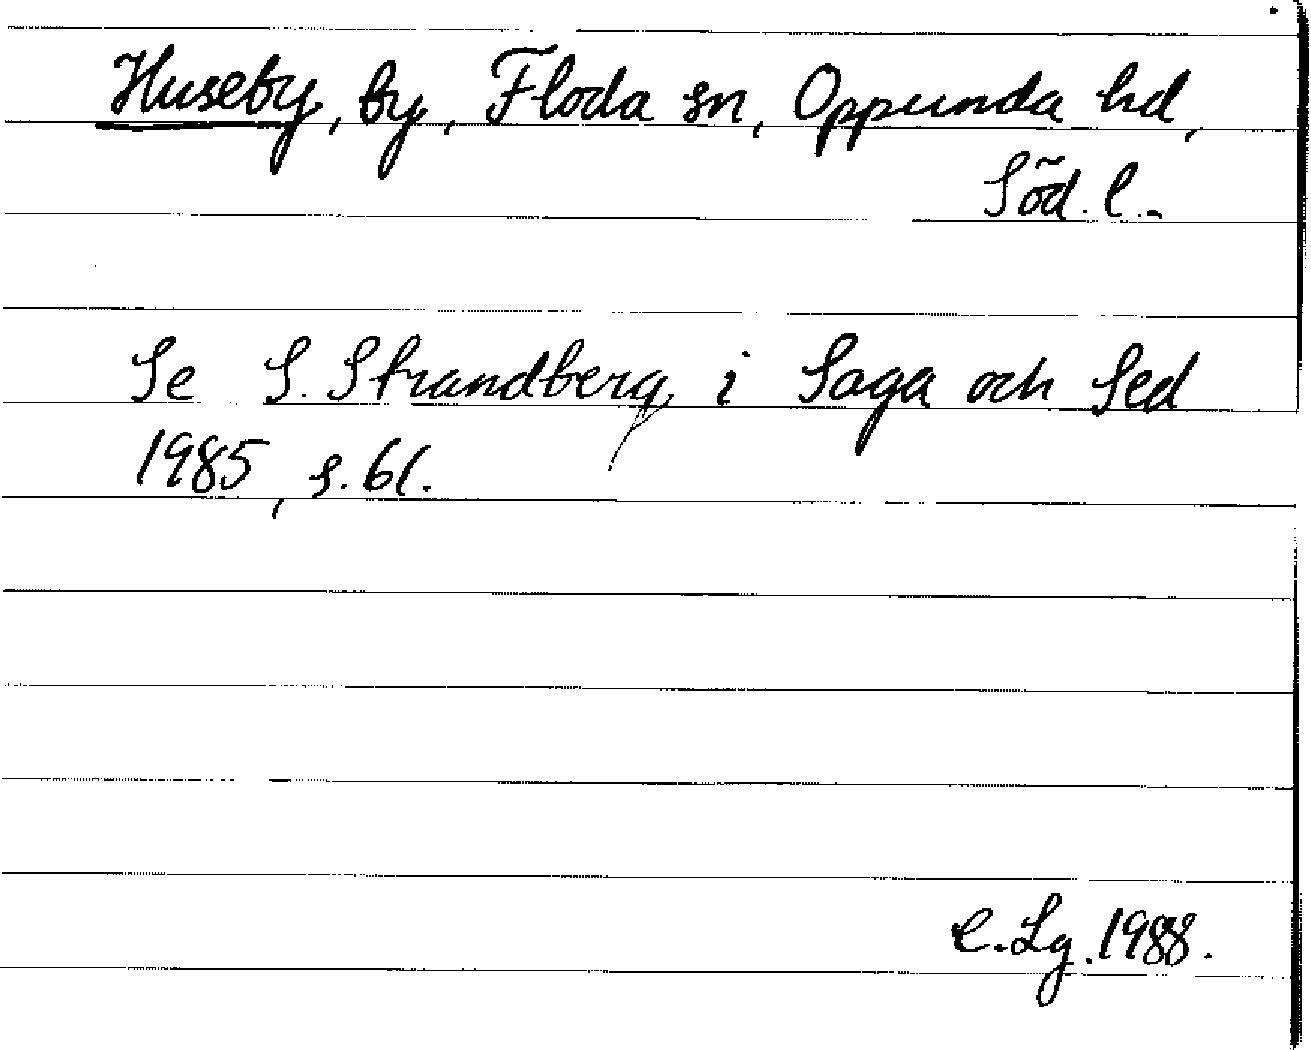 Huseby, by, Floda sn, Oppunda hd,
Söd. l.
Se S. Strandberg i Saga och Sed
1985, s. 61.
C. Lg. 1988.